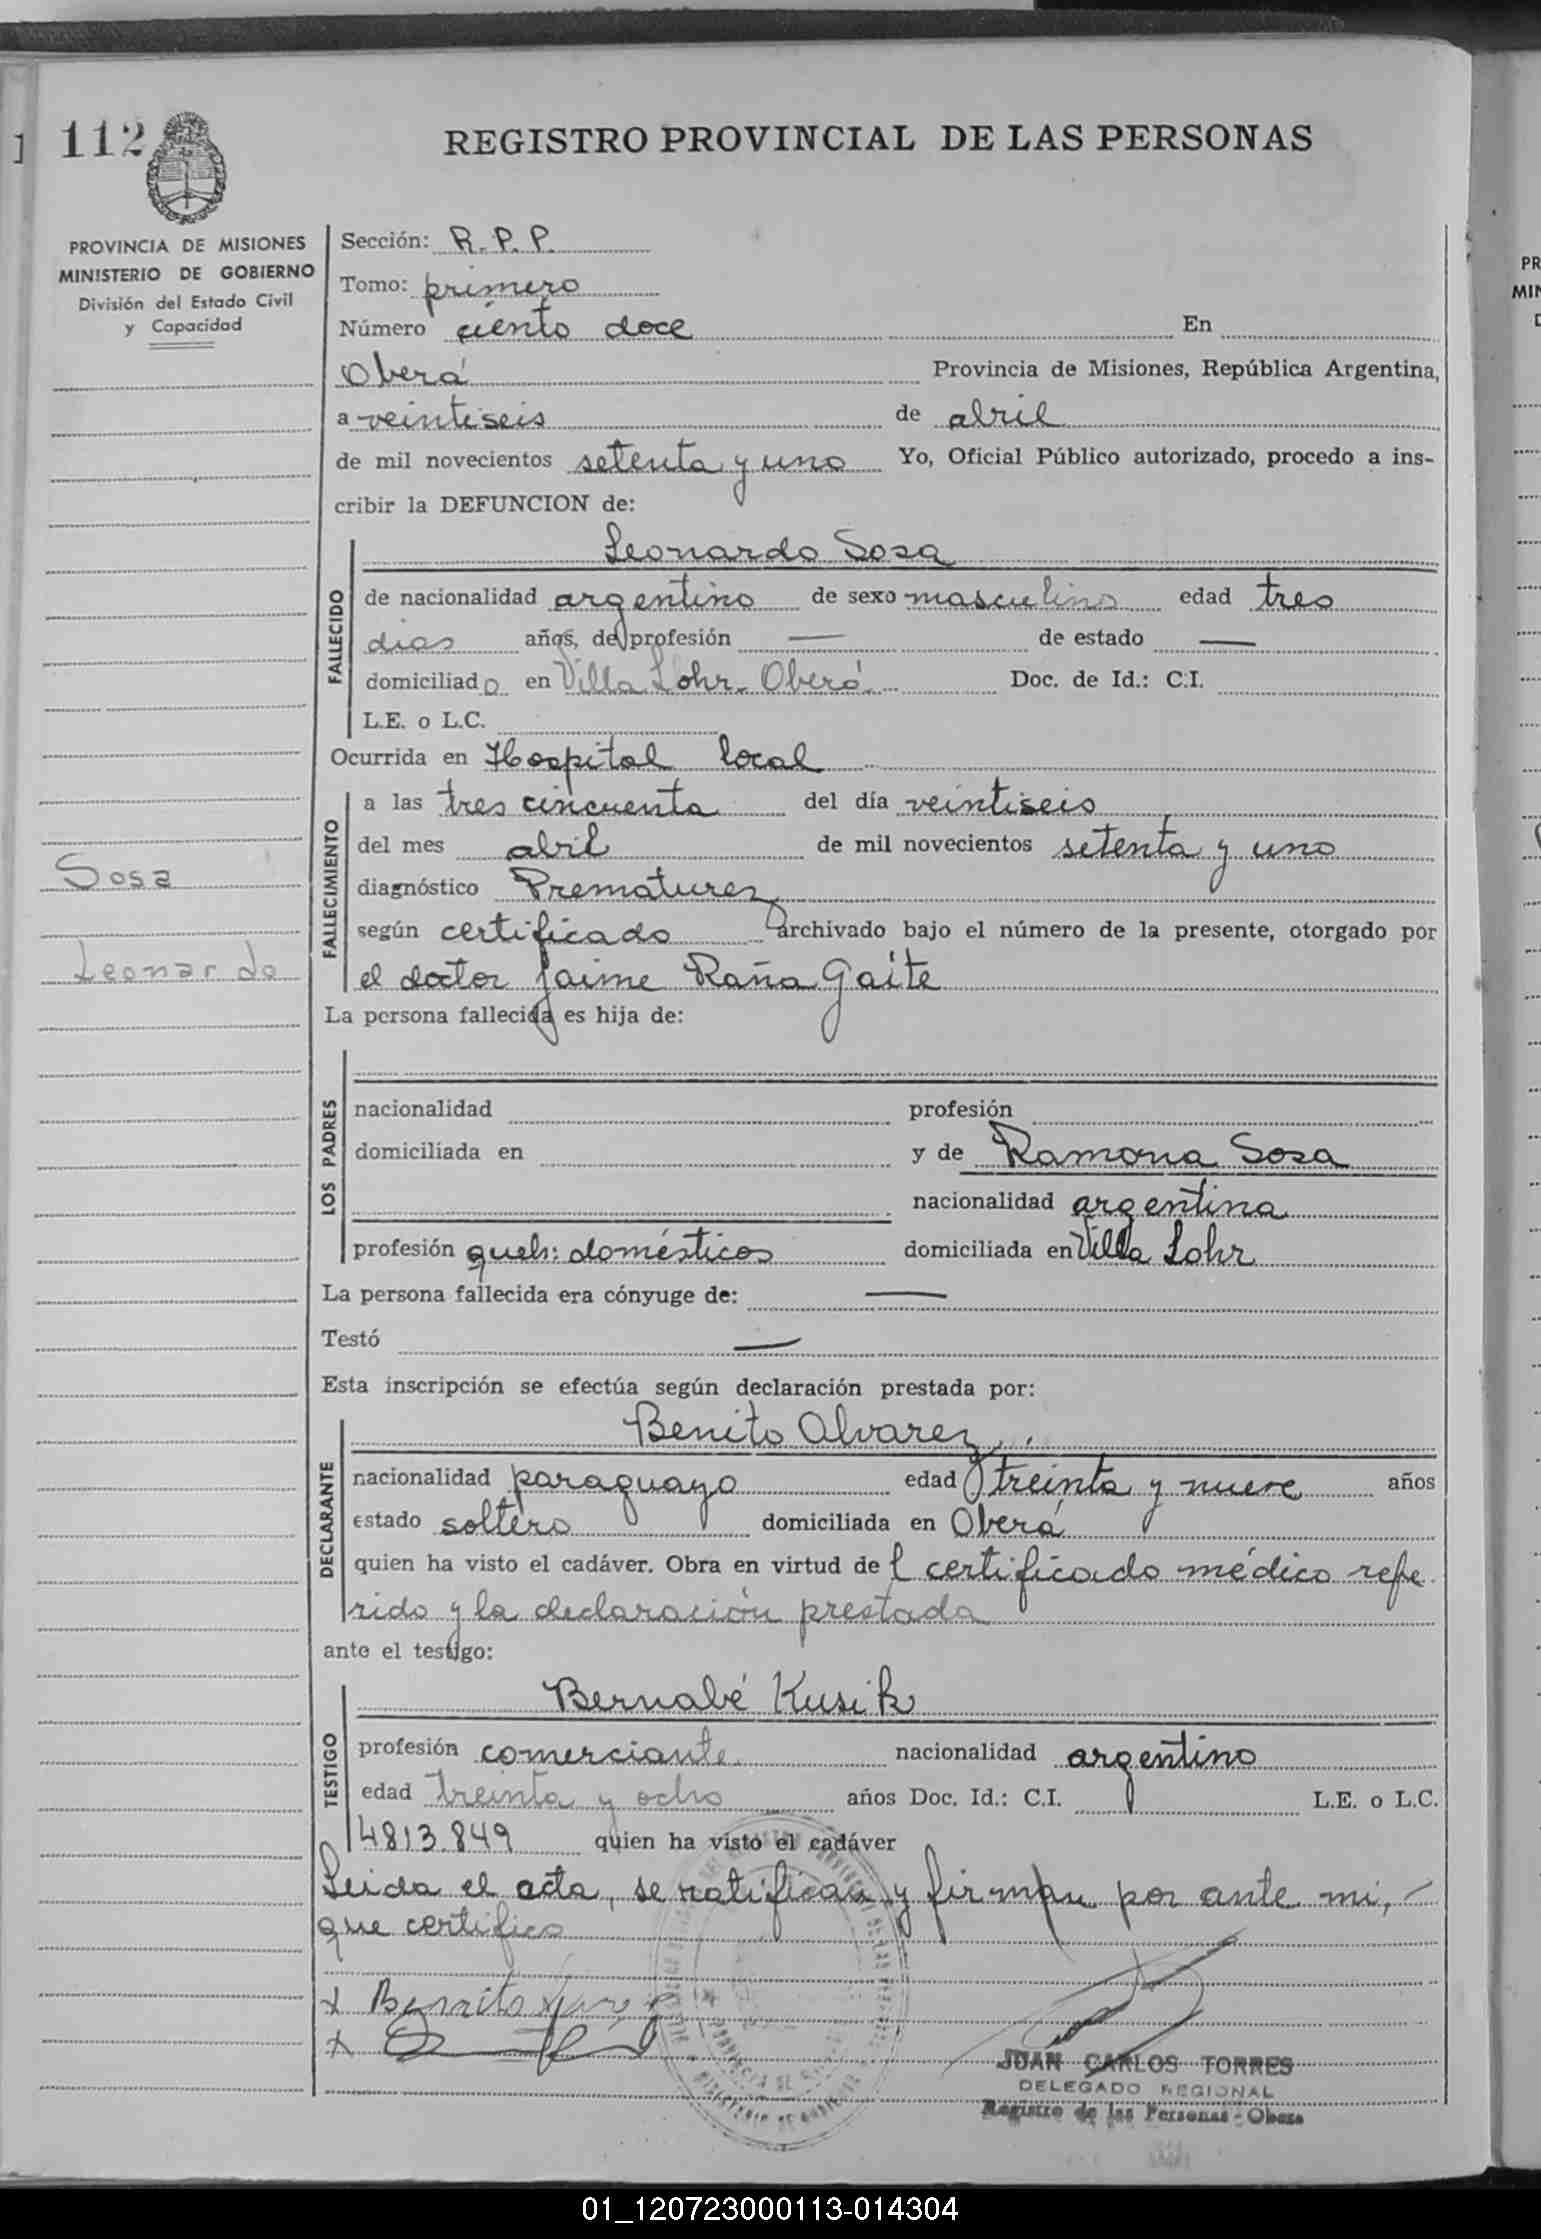 112
REGISTRO PROVINCIAL DE LAS PERSONAS
PROVINCIA DE MISIONES
MINISTERIO DE GOBIERNO
División del Estado Civil
y Capacidad
Sección: R.P.P.
Tomo: primero
Número ciento doce En
Oberá Provincia de Misiones, República Argentina,
a veintiseis de abril
de mil novecientos setenta y uno Yo, Oficial Público autorizado, procedo a ins-
cribir la DEFUNCION de:
FALLECIDO
Leonardo Sosa
de nacionalidad argentino de sexo masculino edad tres
dias años, de profesión — de estado —
domiciliado en Villa Lohr. Oberá. Doc. de Id.: C.I.
L.E. o L.C.
Ocurrida en Hospital local
FALLECIMIENTO
a las tres cincuenta del día veintiseis
del mes abril de mil novecientos setenta y uno
diagnóstico Prematurez
según certificado archivado bajo el número de la presente, otorgado por
el doctor Jaime Raña Gaite
Sosa
Leonardo
La persona fallecida es hija de:
LOS PADRES
nacionalidad profesión
domiciliada en y de Ramona Sosa
nacionalidad argentina
profesión queh: domésticos domiciliada en Villa Lohr
La persona fallecida era cónyuge de: —
Testó —
Esta inscripción se efectúa según declaración prestada por:
DECLARANTE
Benito Alvarez
nacionalidad paraguayo edad treinta y nueve años
estado soltero domiciliada en Oberá
quien ha visto el cadáver. Obra en virtud de l certificado médico refe
rido y la declaración prestada
ante el testigo:
TESTIGO
Bernabé Kusik
profesión comerciante nacionalidad argentino
edad treinta y ocho años Doc. Id.: C.I. L.E. o L.C.
4813.849 quien ha visto el cadáver
Leida el acta, se ratifican y firman por ante mi, -
que certifico
x Benito
x
JUAN CARLOS TORRES
DELEGADO REGIONAL
Registro de las Personas - Obera
PR
MIN
01_120723000113-014304